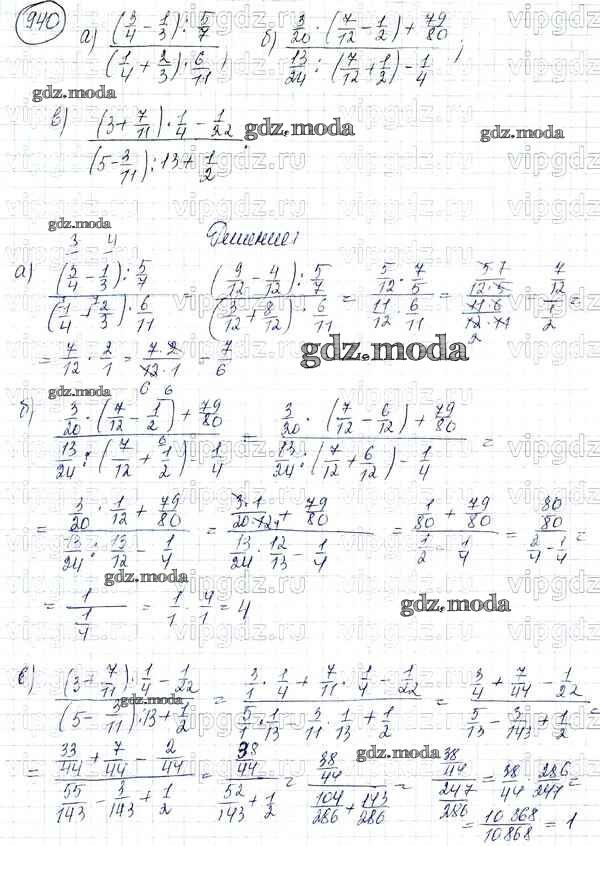 940 а) ((3/4 - 1/3) : 5/7) / ((1/4 + 2/3) · 6/11); б) (3/20 : (7/12 - 1/2) + 79/80) / (13/24 : (7/12 + 1/2) - 1/4);
gdz.moda
в) ((3 + 7/11) · 1/4 - 1/22) / ((5 - 3/11) : 13 + 1/2).
gdz.moda gdz.moda
gdz.moda Решение:
а) ((3/4 - 1/3) : 5/7) / ((1/4 + 2/3) · 6/11) = ((9/12 - 4/12) : 5/7) / ((3/12 + 8/12) · 6/11) = (5/12 · 7/5) / (11/12 · 6/11) = (5·7 / 12·5) / (11·6 / 12·11) = (7/12) / (1/2) =
= 7/12 · 2/1 = 7·2 / 12·1 = 7/6
gdz.moda
gdz.moda
б) (3/20 · (7/12 - 1/2) + 79/80) / (13/24 : (7/12 + 1/2) - 1/4) = (3/20 · (7/12 - 6/12) + 79/80) / (13/24 : (7/12 + 6/12) - 1/4) =
= (3/20 · 1/12 + 79/80) / (13/24 : 13/12 - 1/4) = (3·1 / 20·12 + 79/80) / (13/24 · 12/13 - 1/4) = (1/80 + 79/80) / (1/2 - 1/4) = (80/80) / (2/4 - 1/4) =
gdz.moda
= 1 / (1/4) = 1/1 · 4/1 = 4
gdz.moda
в) ((3 + 7/11) · 1/4 - 1/22) / ((5 - 3/11) : 13 + 1/2) = (3/1 · 1/4 + 7/11 · 1/4 - 1/22) / (5/1 · 1/13 - 3/11 · 1/13 + 1/2) = (3/4 + 7/44 - 1/22) / (5/13 - 3/143 + 1/2) =
gdz.moda
= (33/44 + 7/44 - 2/44) / (55/143 - 3/143 + 1/2) = (38/44) / (52/143 + 1/2) = (38/44) / (104/286 + 143/286) = (38/44) / (247/286) = 38/44 · 286/247 =
gdz.moda
= 10868/10868 = 1